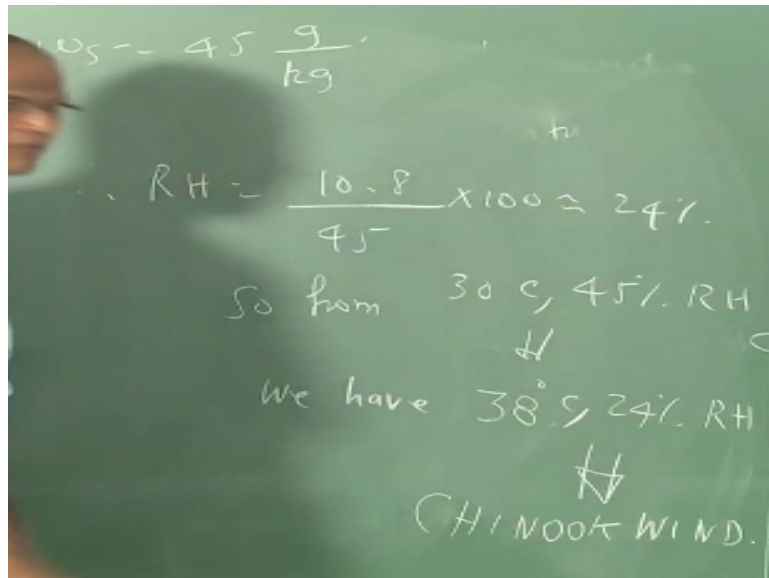 ws = 45 g/kg
∴ RH = 10.8/45 × 100 ≈ 24%.
So from 30 C, 45% RH
⇓
we have 38°C, 24% RH
⇓
CHINOOK WIND.